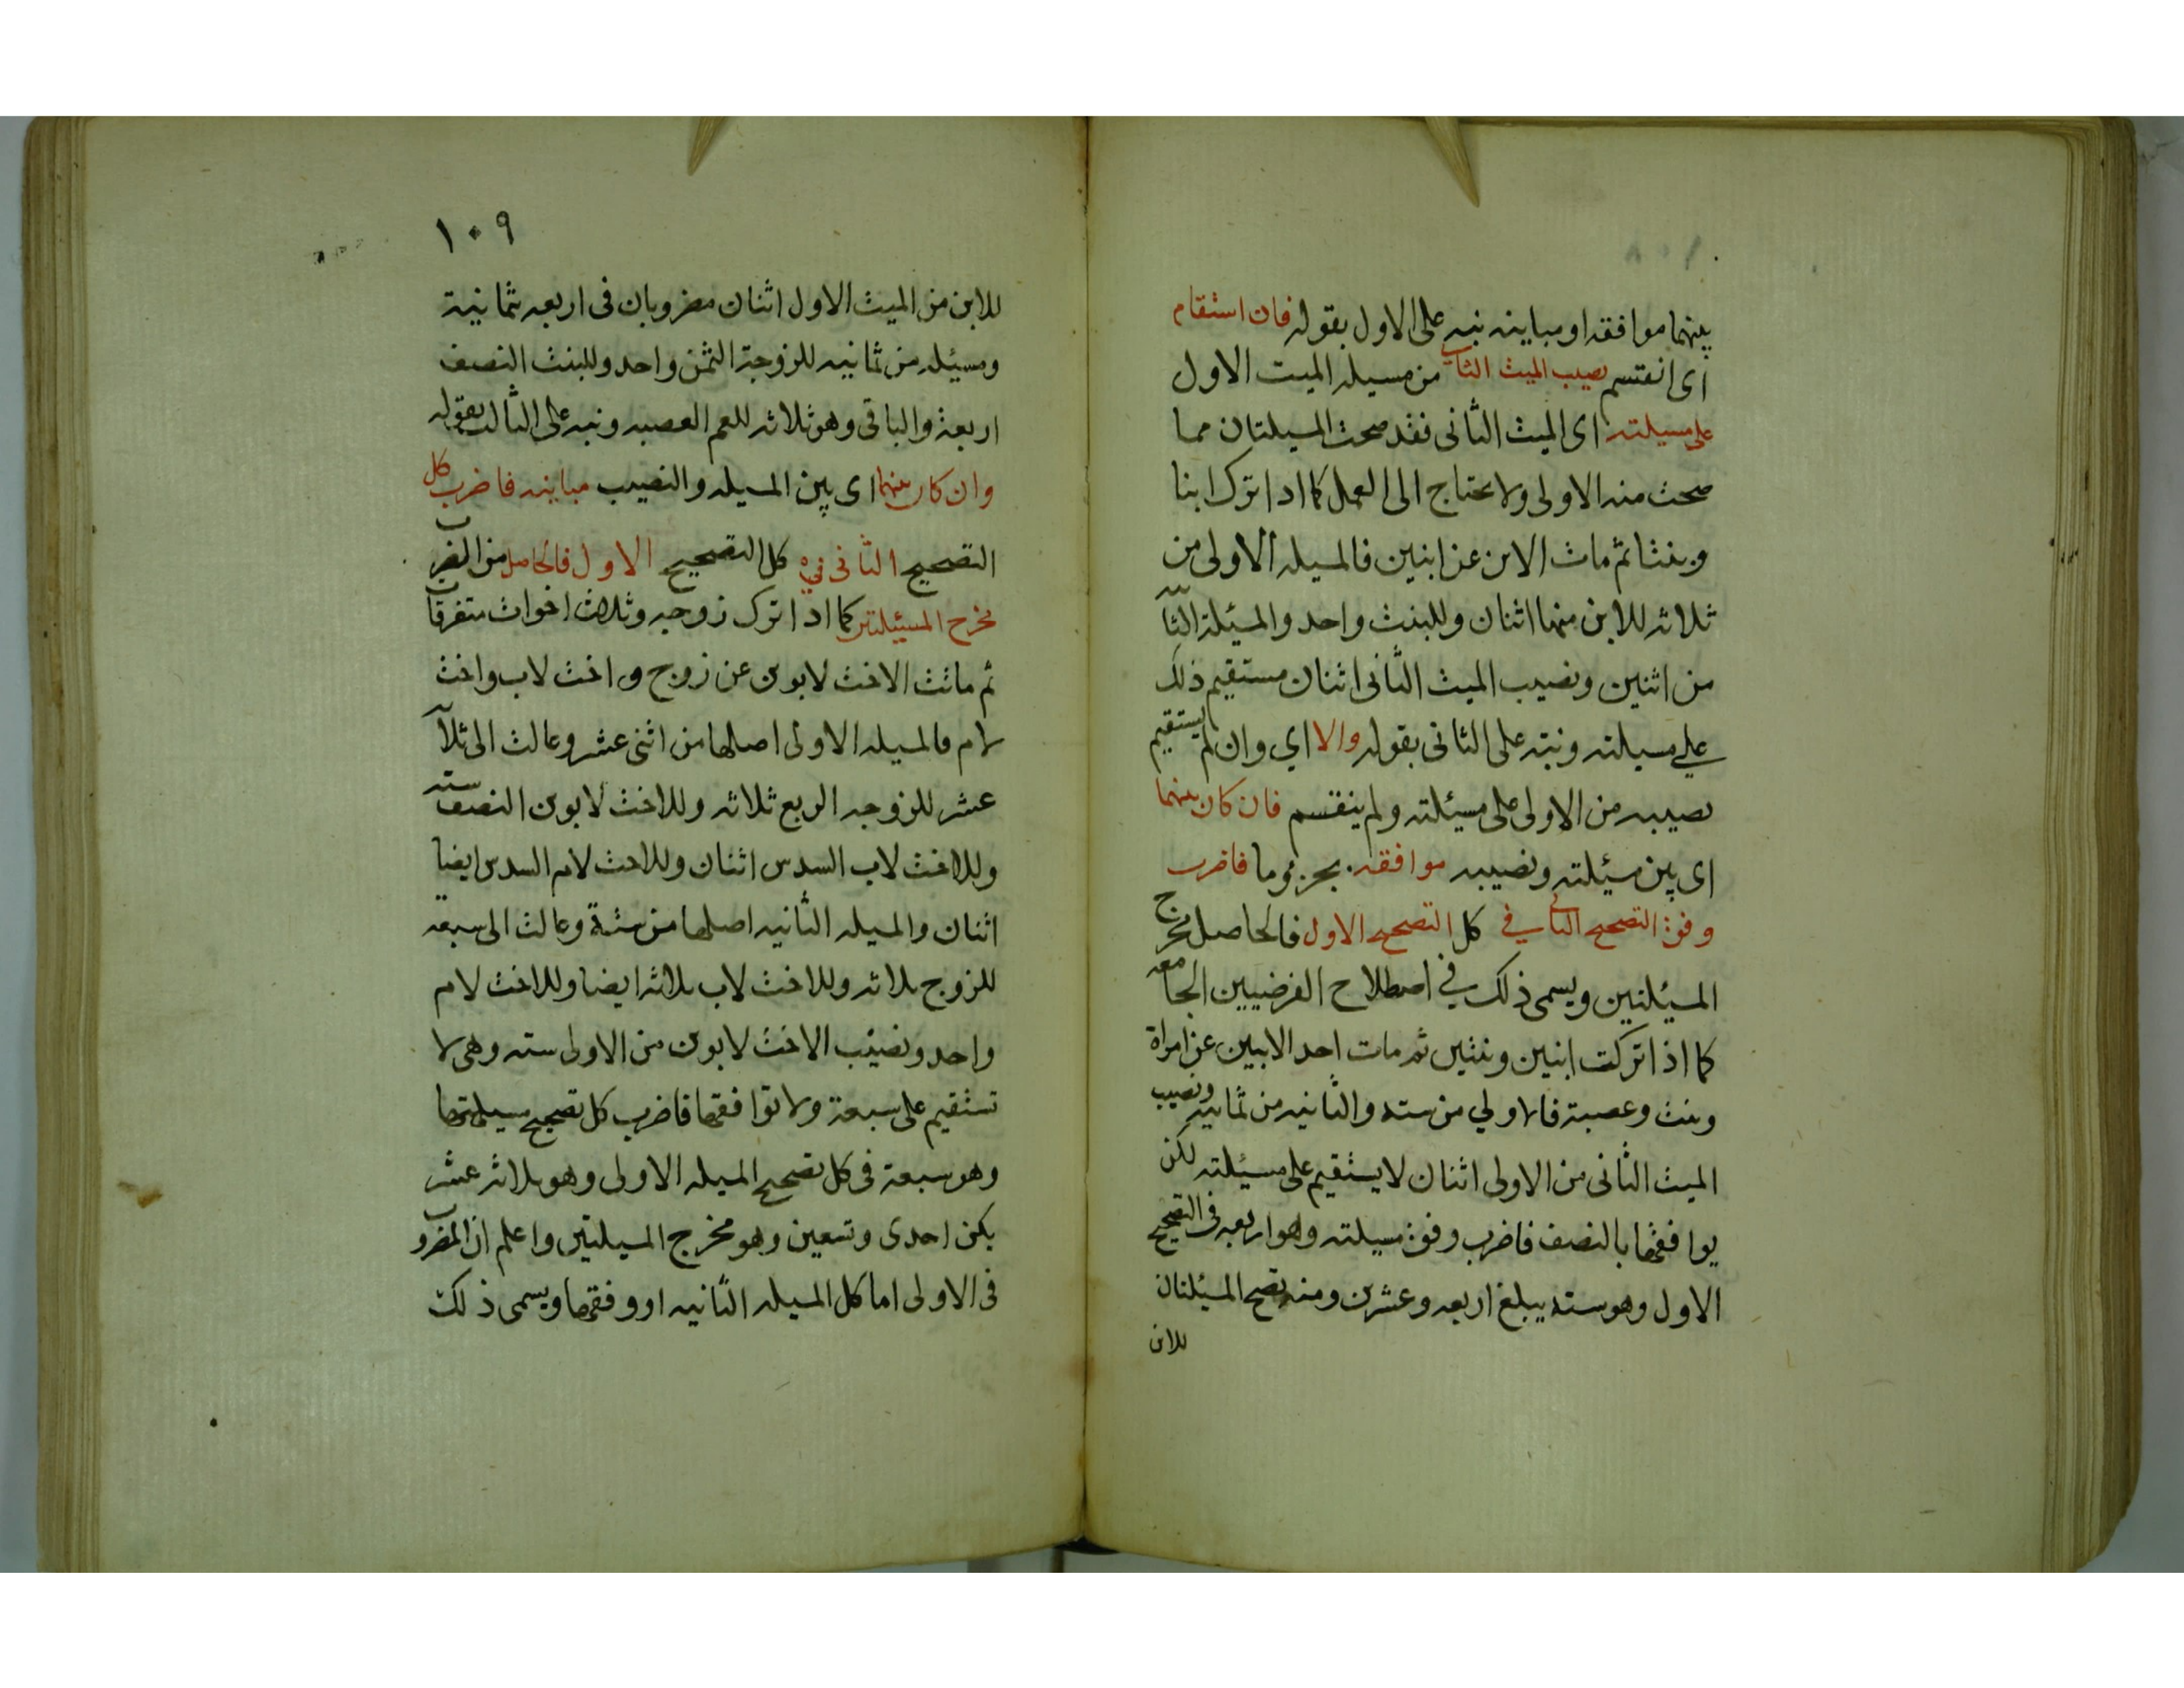 بينهما موافقه او مباينه نبه على الاول بقوله فان استقام
اى انقتسم نصيب الميث الثانى من مسيله الميت الاول
على مسيلته اى الميث الثانى فقد صحت المسيلتان مما
صحث منه الاولى ولا يحتاج الى العمل كما اذا ترك ابنا
وبنثا ثم ماث الابن عن ابنين فالمسيله الاولى من
ثلاثه للابن منها اثنان وللبنث واحد والمسيئلة الثا
من اثنين ونصيب الميث الثانى اثنان مستقيم ذلك
على مسيلته ونبه على الثانى بقوله والا اي وان لم يستقيم
نصيبه من الاولى على مسيئلته ولم ينقسم فان كان بينهما
اى بين مسيئلته ونصيبه موافقه بجزء ما فاضرب
وفق التصحيح الثاني في كل التصحيح الاول فالحاصل مخرج
المسيئلتين ويسمى ذلك في اصطلاح الفرضيين الجامعه
كما اذا تركت ابنين وبنثين ثم مات احد الابنين عن امراة
وبنث وعصبة فالاولي من سته والثانيه من ثمانيه ونصيب
الميث الثانى من الاولى اثنان لا يستقيم على مسيئلته لكن
يوافقها بالنصف فاضرب وفق مسيلته وهو اربعه فى التصحيح
الاول وهو سته يبلغ اربعه وعشرين ومنه تصح المسيئلتان
للابن
١٠٩
للابن من الميث الاول اثنان مضروبان فى اربعه ثمانية
ومسيئله من ثمانيه للزوجة الثمن واحد وللبنث النصف
اربعة والباقى وهو ثلاثه للعم العصبه ونبه على الثالث بقوله
وان كان بينهما اى بين المسيله والنصيب مباينه فاضرب كل
التصحيح الثانى في كل التصحيح الاول فالحاصل من الضرب
مخرج المسيئلتين كما اذا ترك زوجه وثلاث اخواث متفرقاث
ثم ماتث الاخث لابوين عن زوج واخث لاب واخث
لام فالمسيله الاولى اصلها من اثنى عشر وعالث الى ثلاثه
عشر للزوجه الربع ثلاثه وللاخث لابوين النصف سته
وللاخث لاب السدس اثنان وللاخث لام السدس ايضا
اثنان والمسيله الثانيه اصلها من ستة وعالث الى سبعه
للزوج ثلاثه وللاخث لاب ثلاثه ايضا وللاخث لام
واحد ونصيب الاخث لابوين من الاولى سته وهى لا
تستقيم على سبعة ولا توافقها فاضرب كل تصحيح مسيلتها
وهو سبعة فى كل تصحيح المسيله الاولى وهو ثلاثه عشر
يكن احدى وتسعين وهو مخرج المسيلتين واعلم ان المضروب
فى الاولى اما كل المسيله الثانيه او وفقها ويسمى ذلك